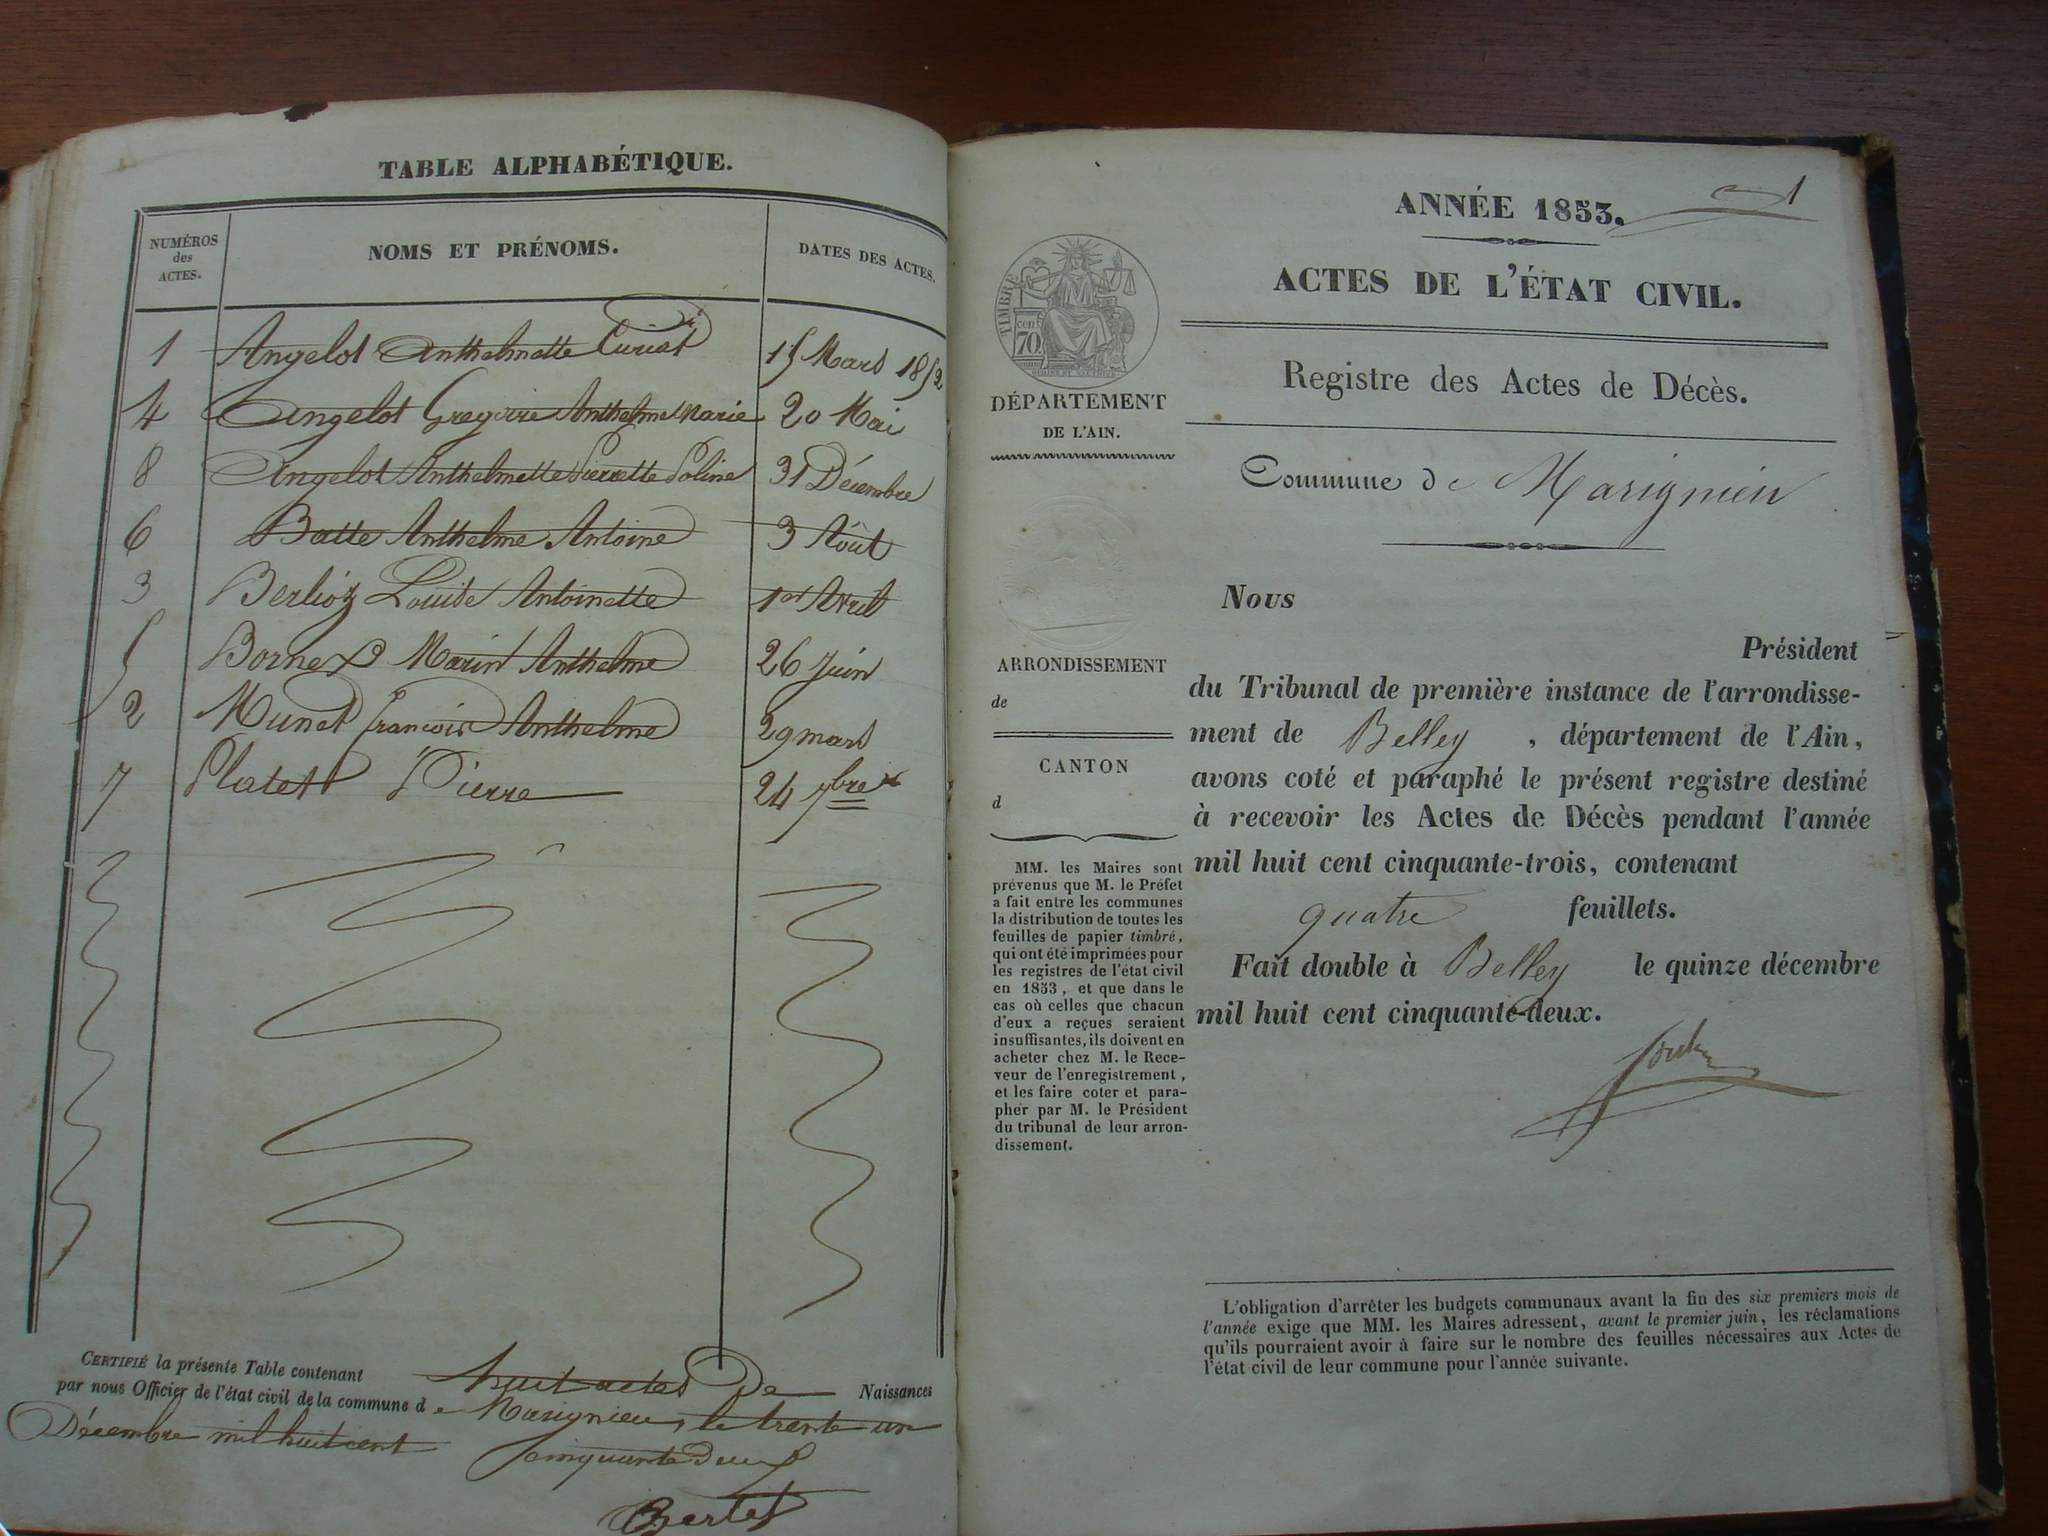 TABLE ALPHABÉTIQUE.
NUMÉROS des ACTES. NOMS ET PRÉNOMS. DATES DES ACTES.
1 Angelot Anthelmette Curiat 15 Mars 1852
4 Angelot Gregoire Anthelme Marie 20 Mai
8 Angelot Anthelmette Pierrette Poline 31 Décembre
6 Batte Anthelme Antoine 3 Août
3 Berlioz Louise Antoinette 1er Avril
5 Bornex Marin Anthelme 26 Juin
2 Munet François Anthelme 29 mars
7 Platet Pierre 24 7bre
CERTIFIÉ la présente Table contenant huit actes de Naissances
par nous Officier de l'état civil de la commune de Marignieu, le trente un
Décembre mil huit cent
cinquante deux
Bertet
1
ANNÉE 1853.
ACTES DE L'ÉTAT CIVIL.
Registre des Actes de Décès.
TIMBRE
cen
70
DÉPARTEMENT
DE L'AIN.
Commune de Marignieu
Nous
Président
du Tribunal de première instance de l'arrondisse-
ment de Belley, département de l'Ain,
avons coté et paraphé le présent registre destiné
à recevoir les Actes de Décès pendant l'année
mil huit cent cinquante-trois, contenant
quatre feuillets.
Fait double à Belley le quinze décembre
mil huit cent cinquante-deux.
ARRONDISSEMENT
de
CANTON
d
MM. les Maires sont
prévenus que M. le Préfet
a fait entre les communes
la distribution de toutes les
feuilles de papier timbré,
qui ont été imprimées pour
les registres de l'état civil
en 1853, et que dans le
cas où celles que chacun
d'eux a reçues seraient
insuffisantes, ils doivent en
acheter chez M. le Rece-
veur de l'enregistrement,
et les faire coter et para-
pher par M. le Président
du tribunal de leur arron-
dissement.
L'obligation d'arrêter les budgets communaux avant la fin des six premiers mois de
l'année exige que MM. les Maires adressent, avant le premier juin, les réclamations
qu'ils pourraient avoir à faire sur le nombre des feuilles nécessaires aux Actes de
l'état civil de leur commune pour l'année suivante.